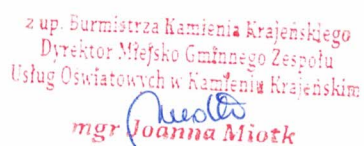 z up. Burmistrza Kamienia Krajeńskiego
Dyrektor Miejsko Gminnego Zespołu
Usług Oświatowych w Kamieniu Krajeńskim
mgr Joanna Miotk